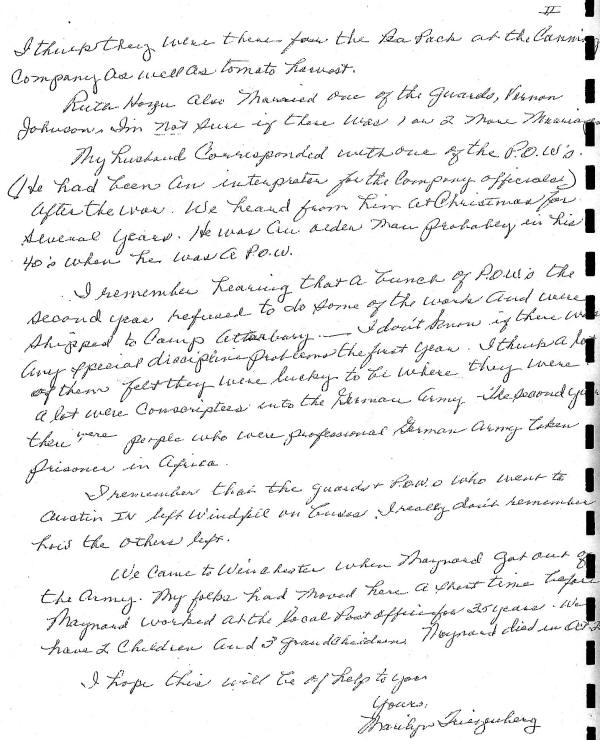 II
I think they were there for the Pea Pack at the Canning
Company as well as tomato harvest.
Ruth also Married one of the Guards, Vernon
Johnson. I'm Not Sure if there was 1 or 2 More Marriages
My husband Corresponded with one of the P.O.W's.
(He had been an interpreter for the Company officials)
After the war. We heard from him at Christmas for
several years. He was an older Man probably in his
40's when he was a P.O.W.
I remember hearing that a bunch of P.O.W's the
second year refused to do some of the work and were
shipped to Camp Atterbury — I don't know if there was
any special discipline problems the first year. I think a lot
of them felt they were lucky to be where they were
a lot were Conscriptees into the German Army. The second year
there were people who were professional German Army taken
prisoner in Africa.
I remember that the guards + P.O.W.s who went to
Austin IN left Windfall on buses. I really don't remember
how the others left.
We Came to Winchester when Maynard got out of
the Army. My folks had Moved here a short time before
Maynard worked at the local Post office for 25 years. We
have 2 Children and 3 Grandchildren. Maynard died in
I hope this will be of help to you
Yours,
Marilyn